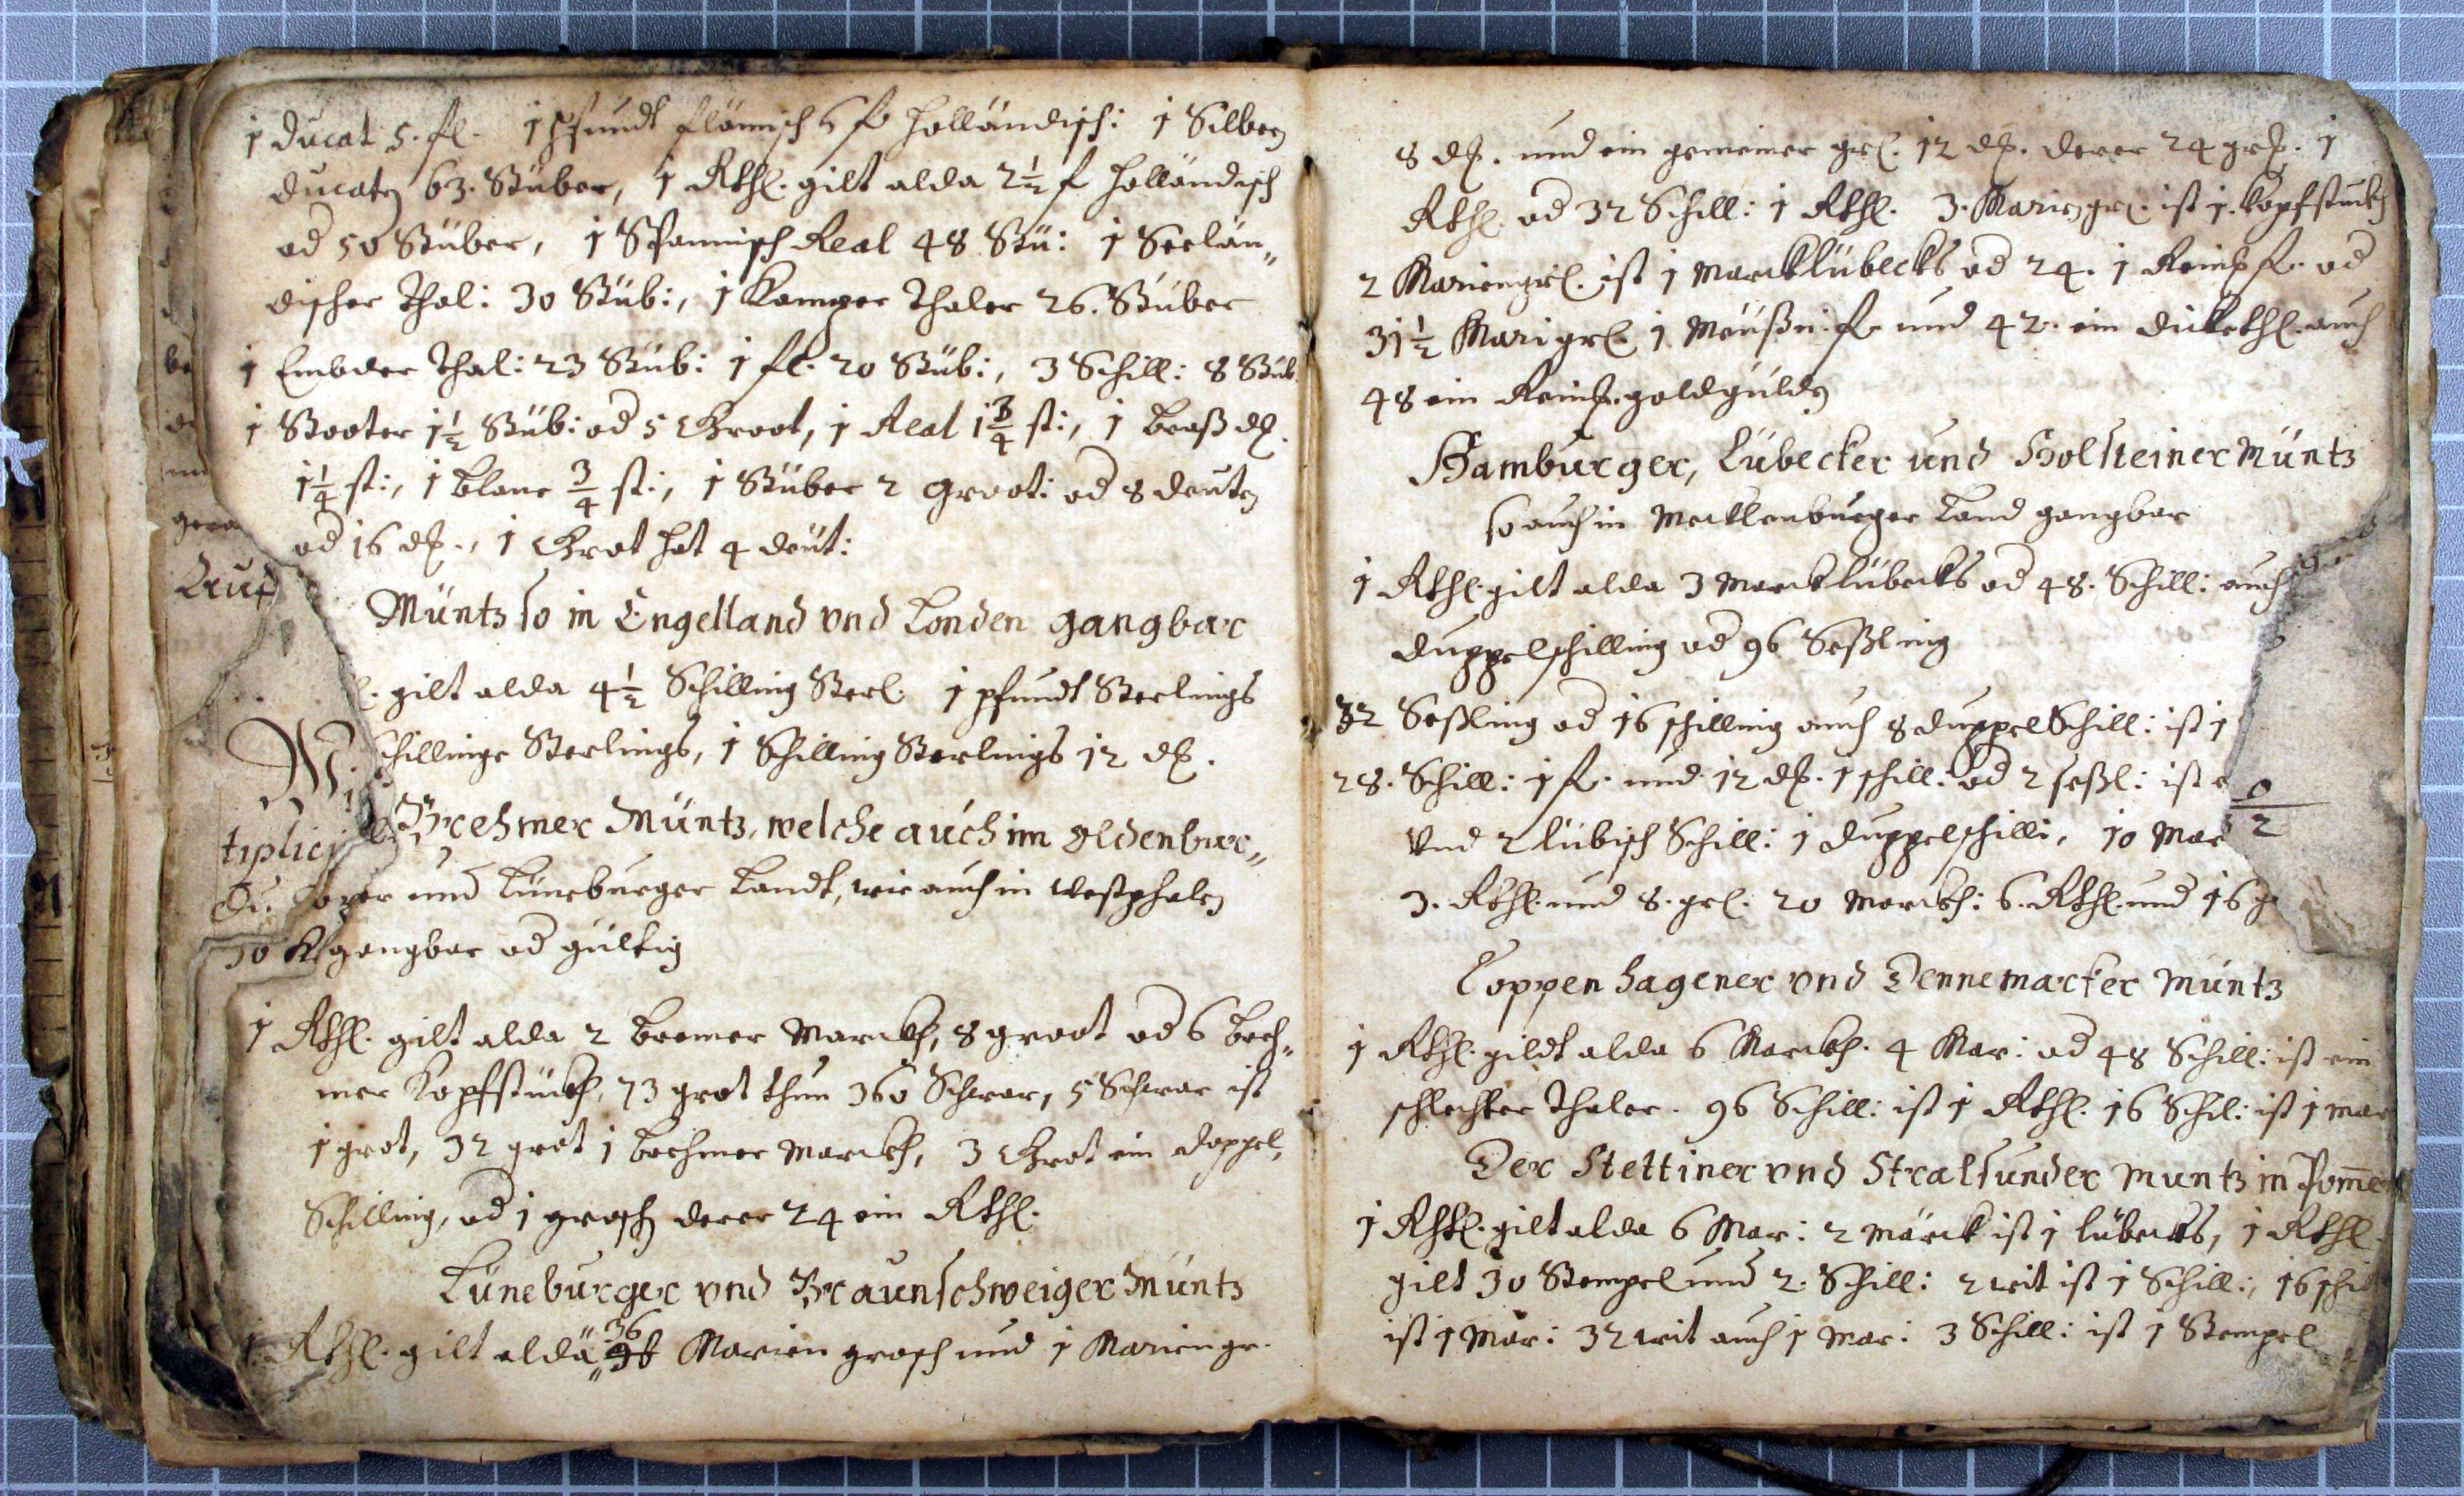 1 Ducat 5. fl. 1 Pfundt flämisch 6 f holländisch: 1 Silbern
ducaten 63. Stüber, 1 Rthl. gilt alda 2½ f holländisch
od 50 Stüber, 1 Spannisch Real 48 Stü: 1 Seelän„
discher Thal: 30 Stüb:, 1 Kamper Thaler 26. Stüber
1 Embder Thal: 23 Stüb: 1 fl. 20 Stüb:, 3 Schill: 8 Stüb.
1 Stooter 1½ Stüb: od 5 Groot, 1 Real 1¾ st:, 1 braß d.
1¼ st:, 1 blanc ¾ st:, 1 Stüber 2 Groot: od 8 deuten
od 16 d., 1 Grot hat 4 deut:
Müntz so in Engelland vnd Londen gangbar
gilt alda 4½ Schilling Sterl. 1 pfundt Sterlings
chillinge Sterlings, 1 Schilling Sterlings 12 d.
Brehmer Müntz, welche auch im Oldenbur„
tiplici
und Lüneburger Landt, wie auch in Westphalen
gangbar od gültig
1 Rthl. gilt alda 2 bremer Marck, 8 groot od 6 breh„
mer Kopfstück, 73 grot thun 360 Schwar, 5 Schwar ist
1 grot, 32 grot 1 brehmer Marck, 3 Grot ein doppel„
Schilling, od 1 groschen derer 24 ein Rthl.
Lüneburger vnd Braunschweiger Müntz
1 Rthl. gilt alda 36 Marien grosch und 1 Mariengr.
8 d. und ein gemeiner grl. 12 d. derer 24 gr. 1
Rthl. od 32 Schill: 1 Rthl. 3. Mariengr. ist 1. Kopfstück
2 Mariengrl. ist 1 Marcklübecks od 24. 1 Reinsf. od
31½ Marigrl. 1 Meüßn: f. und 42. ein dickethl. auch
48 ein Reins. goldgülden
Hamburger, Lübecker und Holsteiner Müntz
so auch in Mecklenburger Land gangbar
1 Rthl. gilt alda 3 Marcklübecks od 48. Schill: auch
duppelschilling od 96 Seßling
32 Seßling od 16 schilling auch 8 duppel Schill: ist 1
28. Schill: 1 f. und 12 d. 1 schill: od 2 seßl: ist
Vnd 2 lübisch Schill: 1 duppelschilli, 10 Mar
3. Rthl. und 8. grl. 20 Marck: 6. Rthl. und 16 g
Coppenhagener vnd Dennemarcker Müntz
1 Rthl. gildt alda 6 Marck. 4 Mar: od 48 Schill: ist ein
schlechter Thaler. 96 Schill: ist 1 Rthl. 16 Schil: ist 1 mar
Der Stettiner vnd Stralsunder Muntz in Pom̄e
1 Rthl. gilt alda 6 Mar: 2 Marck ist 1 lübecks, 1 Rthl.
gilt 30 Stempel und 2. Schill: 2 wit ist 1 Schill:, 16 schil
ist 1 Mar: 32 wit auch 1 Mar: 3 Schill: ist 1 Stempel